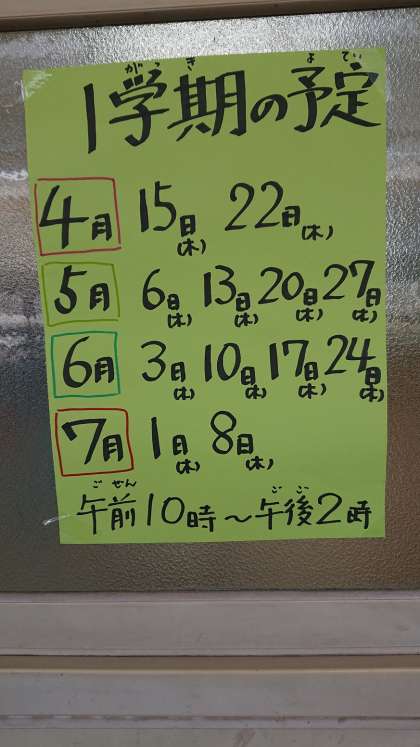 がっき よてい
1学期の予定
4月 15日(木) 22日(木)
5月 6日(木) 13日(木) 20日(木) 27日(木)
6月 3日(木) 10日(木) 17日(木) 24日(木)
7月 1日(木) 8日(木)
ごぜん ごご
午前10時～午後2時